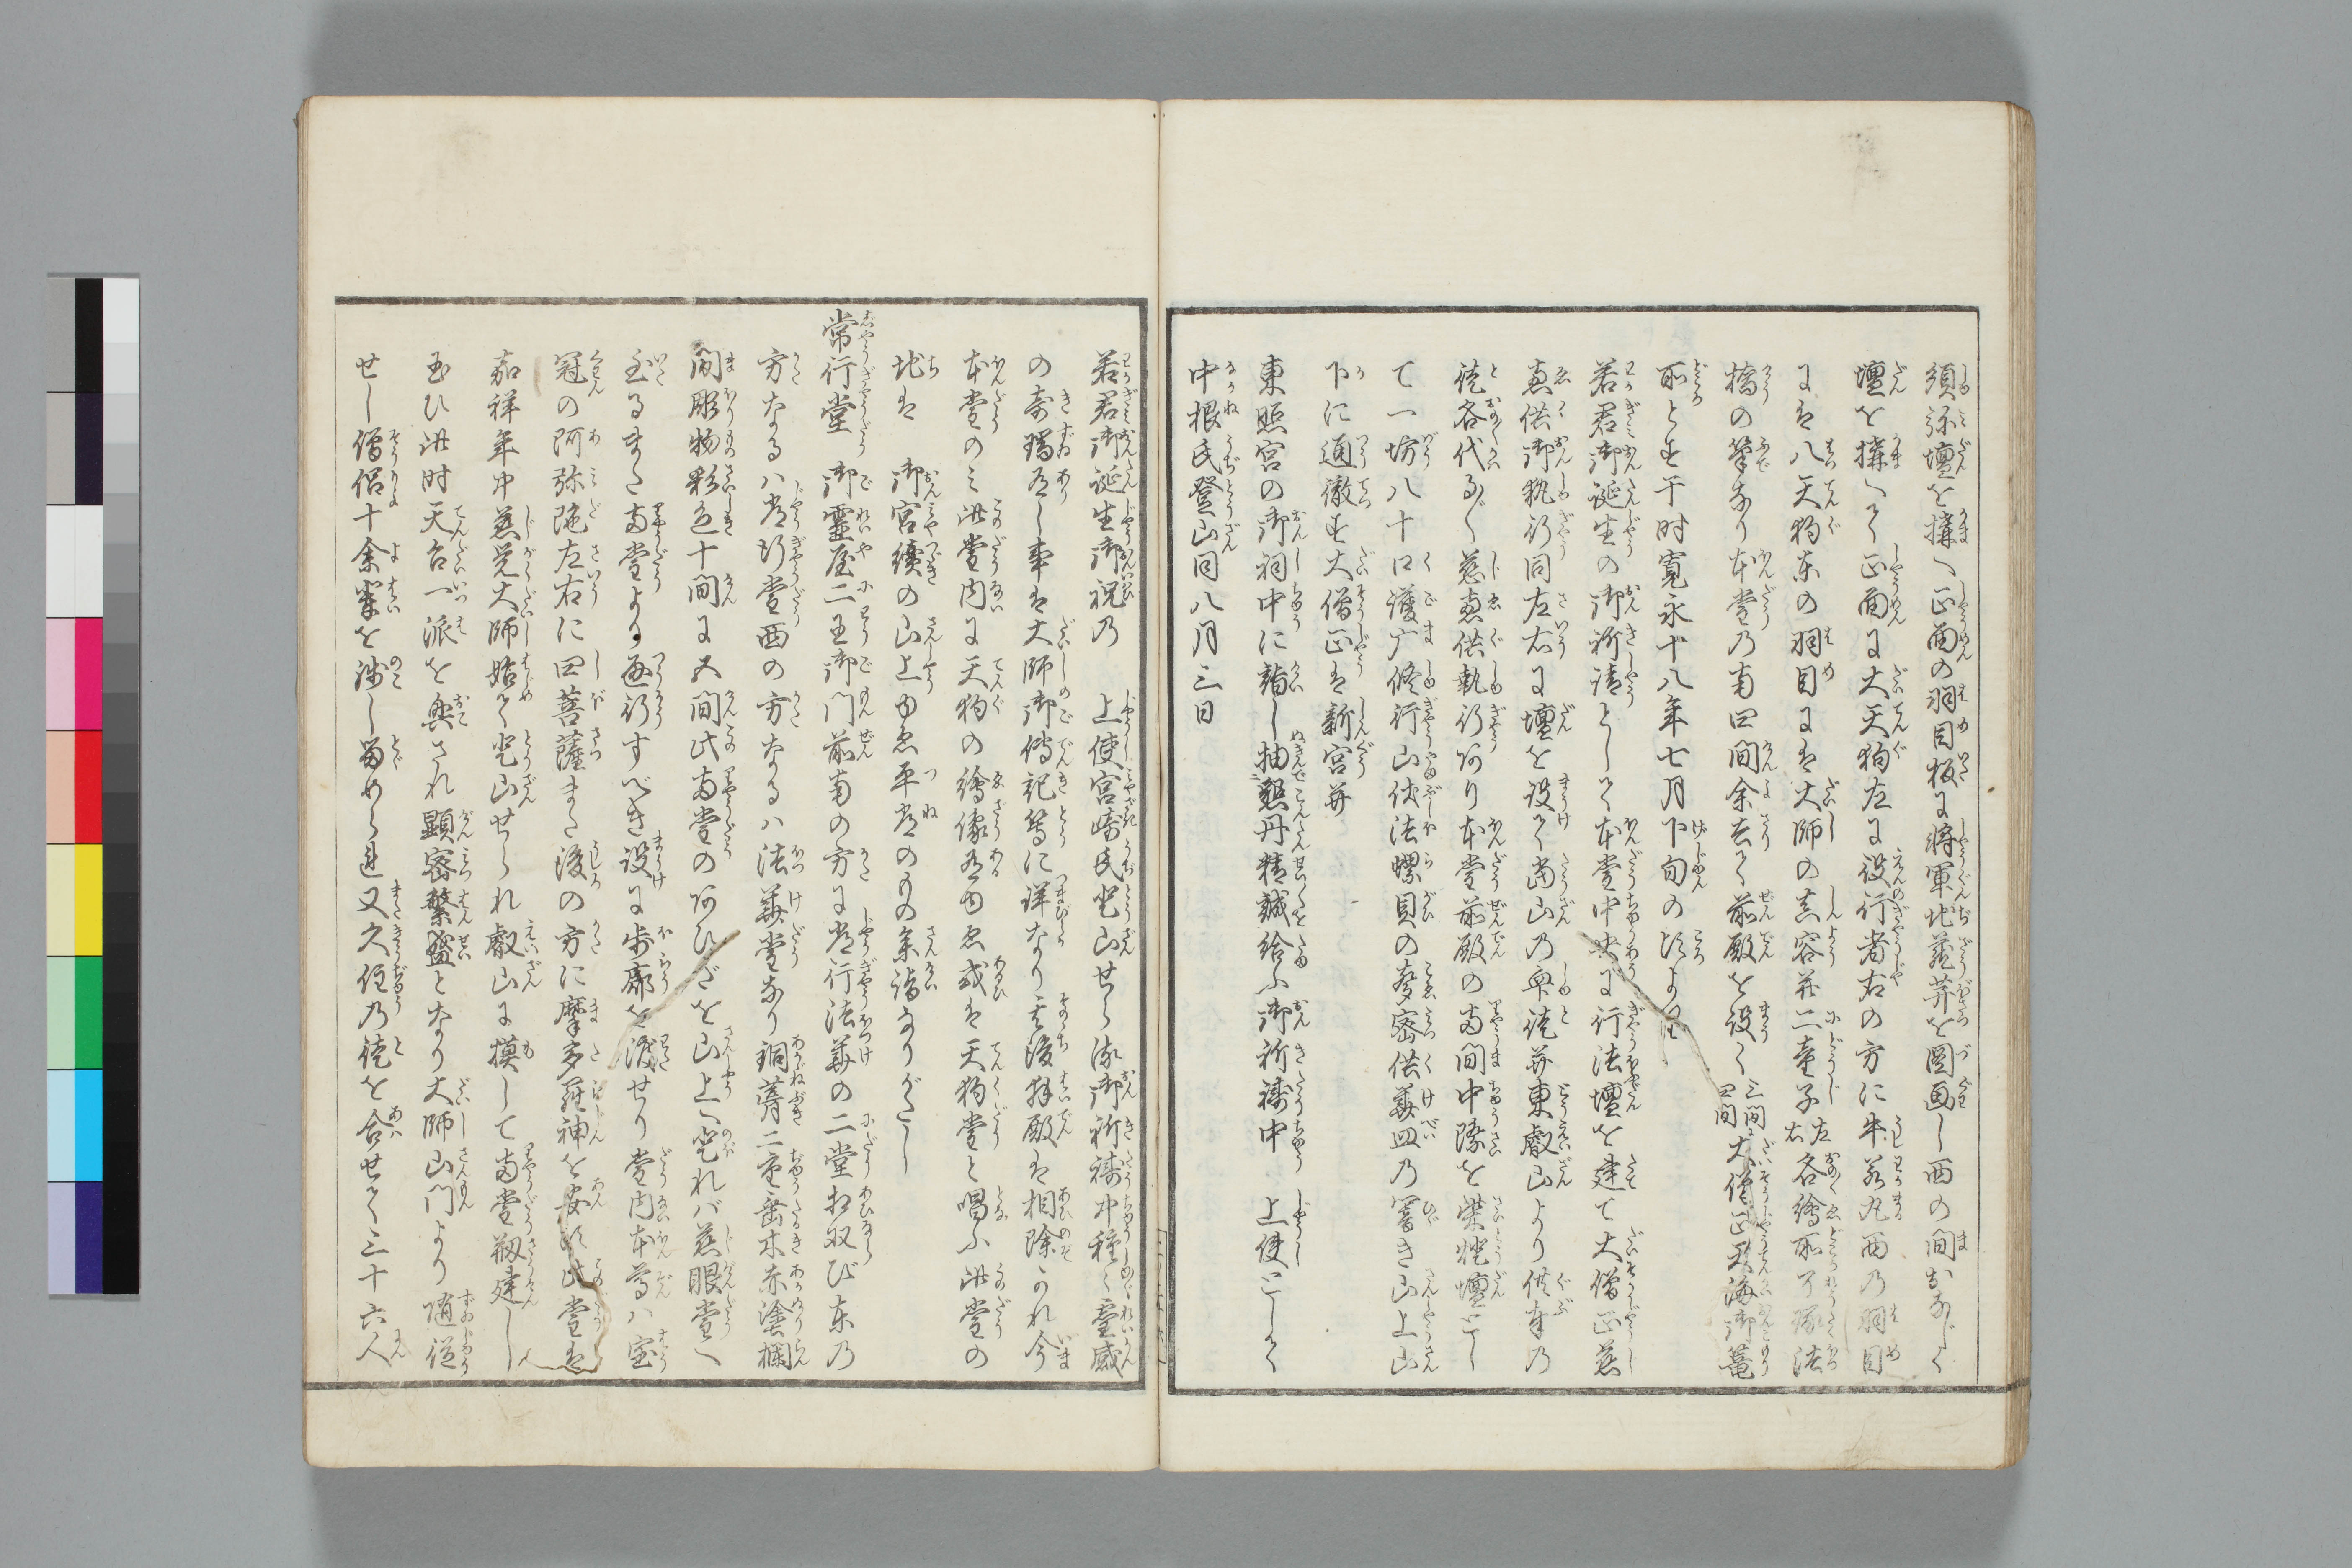 須弥壇を搆へ正面の羽目板に将軍地蔵菩薩を図画し西の間おなじく
壇を搆へて正面に大天狗左に役行者右の方に牛若丸西の羽目
には八天狗東の羽目には大師の真容并二童子左右各絵所了琢法
橋の筆なり本堂の南四間余去て前殿を設く三間四間大僧正天海御篭
所とす于時寛永十八年七月下旬の頃より
若君御誕生の御祈請として本堂中央に行法壇を建て大僧正慈
恵供御執行同左右に壇を設て當山の衆徒并東叡山より供奉の
徒各代る〲慈恵供執行あり本堂前殿の両間中隊を柴燈壇とし
て一坊八十口護广修行山伏法螺貝の声密供華皿の響き山上山
下に通徹す大僧正は新宮并
東照宮の御祠中に詣し抽懇丹精誠給ふ御祈祷中　上使として
中根氏登山同八月三日
若君御誕生御祝乃　上使宮崎氏登山せらる御祈祷中種々霊感
の奇瑞有し事は大師御伝記等に詳なり其後拝殿は相除かれ今
本堂のミ此堂内に天狗の絵像有ゆゑ或は天狗堂と唱ふ此堂の
地は　御宮続の山上ゆゑ平常のもの参詣なりがたし
常行堂　御霊屋二王御門前南の方に常行法華の二堂相双び東乃
方なるハ常行堂西の方なるハ法華堂なり銅葺二重垂木赤塗欄
間彫物彩色十間に五間此両堂のあひだを山上へ登れバ慈眼堂へ
至るまた両堂より通行すべき設に歩廊を渡せり堂内本尊ハ宝
冠の阿弥陀左右に四菩薩また後の方に摩多羅神を安ず此堂は
嘉祥年中慈覚大師始て登山せられ叡山に摸して両堂剏建し
玉ひ此時天台一派を興され顕密繁盛となり大師山門より随従
せし僧侶十余輩を残し留めらる又久住乃徒を合せて三十六人